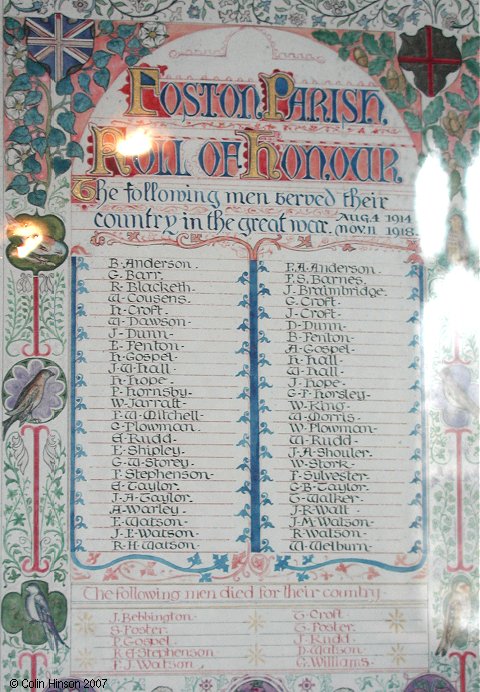 Foston Parish
Roll of Honour
The following men served their
country in the great war. Aug. 4 1914
Nov. 11 1918.
B. Anderson.
G. Barr.
R. Blacketh
W. Cousens.
H. Croft
W. Dawson
J. Dunn
E. Fenton
H. Gospel
J. W. Hall
H. Hope
P. Hornsby
W. Jarratt
F. W. Mitchell
G. Plowman.
E. Rudd
E. Shipley
G. W. Storey
F. Stephenson
E. Taylor
J. A. Taylor
A. Warley
F. Watson
J. E. Watson
R. H. Watson
F. A. Anderson
F. S. Barnes
J. Brambridge.
G. Croft
J. Croft
D. Dunn
B. Fenton
A. Gospel
H. Hall
W. Hall
J. Hope
G. F. Horsley
W. King
W. Morris
W. Plowman
W. Rudd
J. A. Shouler
W. Stork
F. Sylvester
G. B. Taylor
T. Walker
J. R. Watt
J. M. Watson
R. Watson
W. Welburn
The following men died for their country
J. Bebbington
S. Foster
P. Gospel
R. A. Stephenson
F. J. Watson
T. Croft
T. Foster
J. Rudd
D. Watson
G. Williams
© Colin Hinson 2007